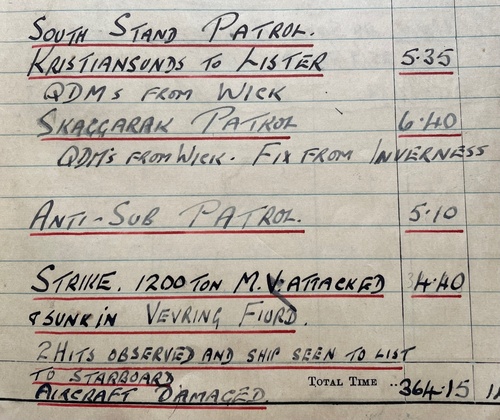 SOUTH STAND PATROL.
KRISTIANSUNDS TO LISTER 5·35
QDMs FROM WICK
SKAGGARAK PATROL 6·40
QDM's FROM WICK. FIX FROM INVERNESS
ANTI-SUB PATROL. 5·10
STRIKE. 1200 TON M.V. ATTACKED 4·40
& SUNK IN VEVRING FIORD.
2 HITS OBSERVED AND SHIP SEEN TO LIST
TO STARBOARD
AIRCRAFT DAMAGED. TOTAL TIME .. 364·15